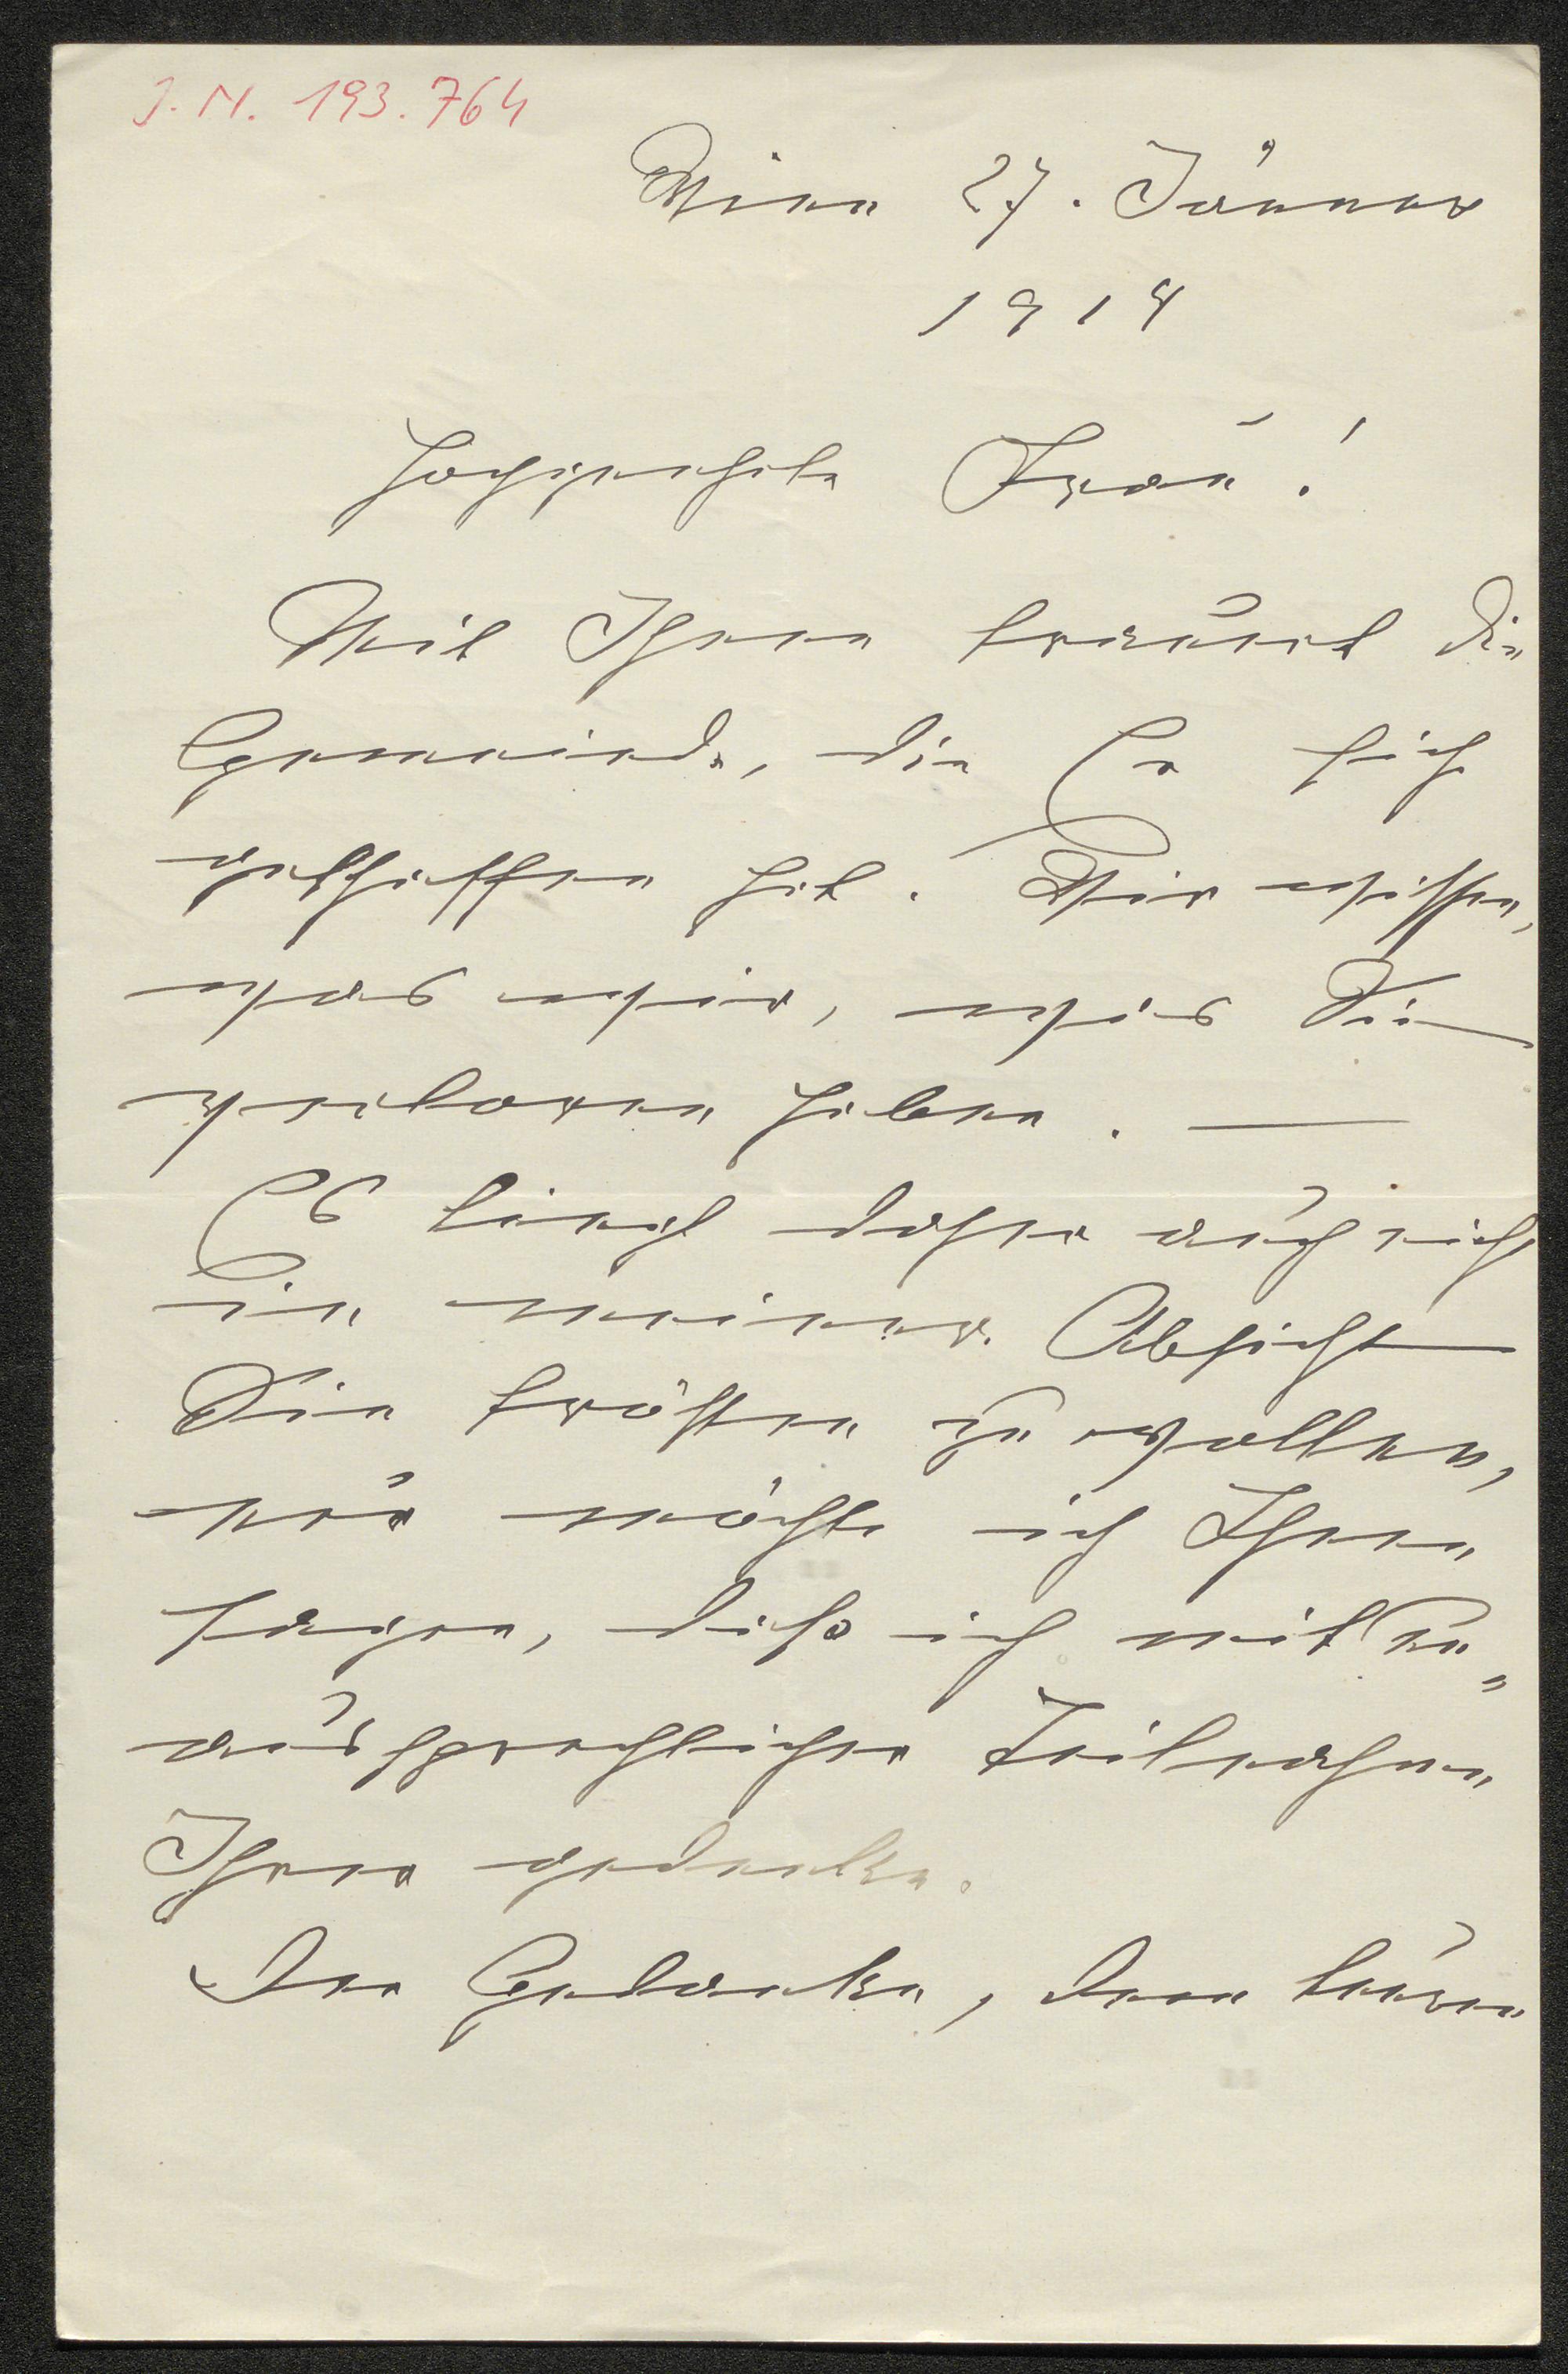 J. N. 193.764
Wien 27. Jänner
1914
Hochgeehrte Frau!
Mit Ihnen trauert die
Gemeinde, die Er sich
geschaffen hat. Wir wissen,
was wir, was Sie
verloren haben. —
Es liegt daher auch nicht
in meiner Absicht
Sie trösten zu wollen,
nur möchte ich Ihnen
sagen, daß ich mit un„
aussprechlicher Teilnahme
Ihrer gedenke.
Der Gedanke, dem teuren